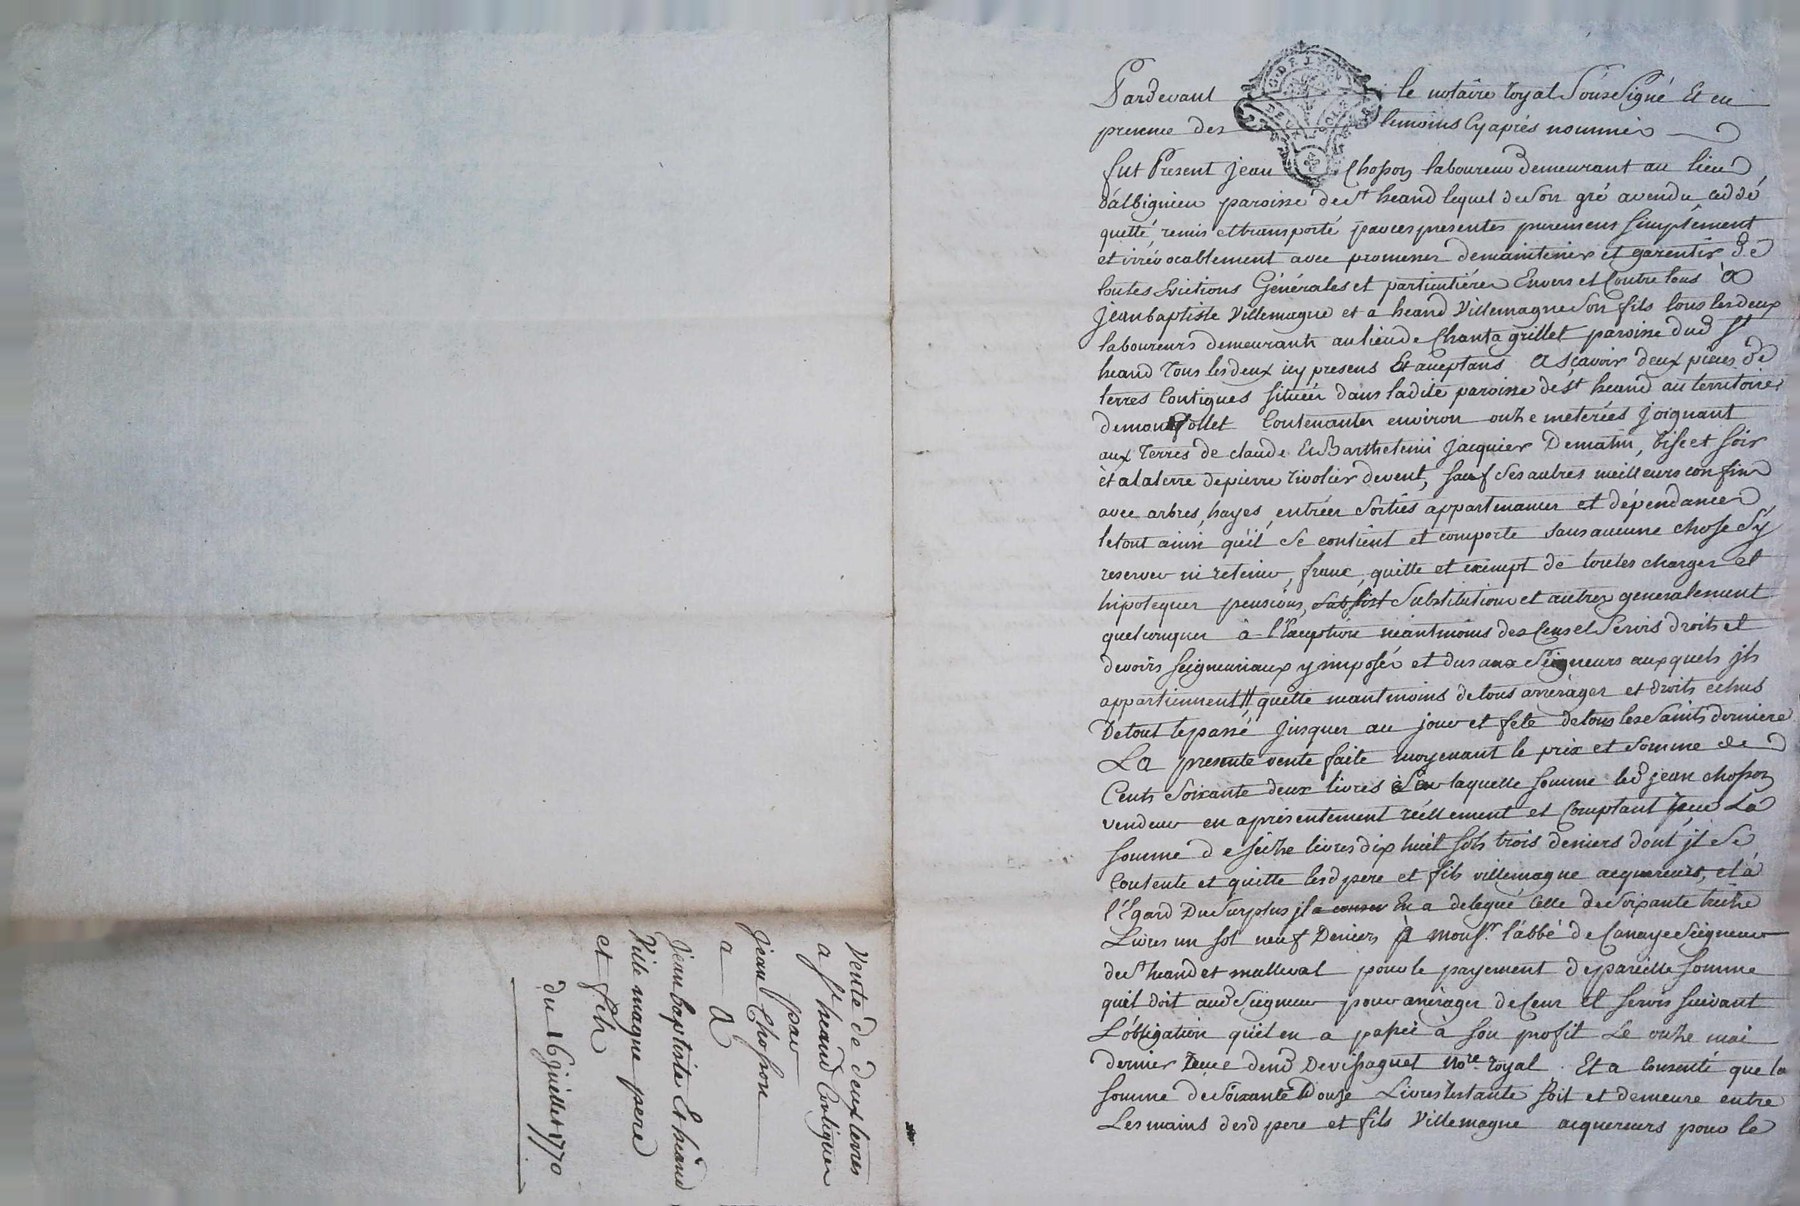 Pardevant le notaire royal Soussigné Et en
presence des temoins Cy après nommés
fut Present jean Chosson laboureur demeurant au lieu
d'albignieu paroisse de St heand lequel de son gré a vendu ceddé
quetté, remis et transporté par ces presentes purement simplement
et irrévocablement avec promesses de maintenir et garentir de
toutes Evictions Générales et particulières Envers et Contre tous à
jean baptiste Villemagne et a heand Villemagne son fils tous les deux
laboureurs demeurants au lieu de Chantagrillet paroisse dud St
heand Tous les deux icy presens Et aceptans a sçavoir deux pieces de
terres Contigues situées dans ladite paroisse de St heand au territoire
de Contenantes environ onze meterées joignant
aux Terres de claude Et Barthelemi jacquier de matin, bise et soir
et a la terre de pierre rivolier de vent, sauf ses autres meilleurs confins
avec arbres, hayes, entrées sorties appartenances et dépendances
le tout ainsi qu'il se contient et comporte sans aucune chose s'y
reserver ni retenir, franc, quitte et exempt de toutes charges et
hipoteques pensions, substitutions et autres generalement
quelconques à l'Exception néantmoins des Cens et Servis droits et
devoirs seigneuriaux y imposés et dus aux Seigneurs auxquels jls
appartiennent quette néantmoins de tous arrérages et droits echus
De tout le passé jusques au jour et fête de tous les Saints derniere
La presente vente faite moyenant le prix et somme de
Cents Soixante deux livres Sur laquelle somme led jean chosson
vendeur en a présentement réellement et Comptant reçu La
somme de seize livres dix huit sols trois deniers dont jl se
Contente et quitte lesd pere et fils villemagne acquereurs, et à
l'Egard Du Surplus jl En a delegué Celle de Soixante treize
Livres un sol neuf Deniers à Monsr. l'abbé de Canaye Seigneur
de St heand et malleval pour le payement de pareille somme
qu'il doit aud Seigneur pour arrérages de Cens et servis suivant
L'obligation qu'il en a passée à son profit Le onze mai
dernier reçue Devissaguet nore. royal. Et a Consenti que la
somme de Soixante Douse Livres restante soit et demeure entre
Les mains desd pere et fils Villemagne acquereurs pour le
Vente de deux terres
a St heand Contigues
par
jean Chosson
a
jean baptiste Et héand
Vile magne pere
et fils
du 16 juillet 1770